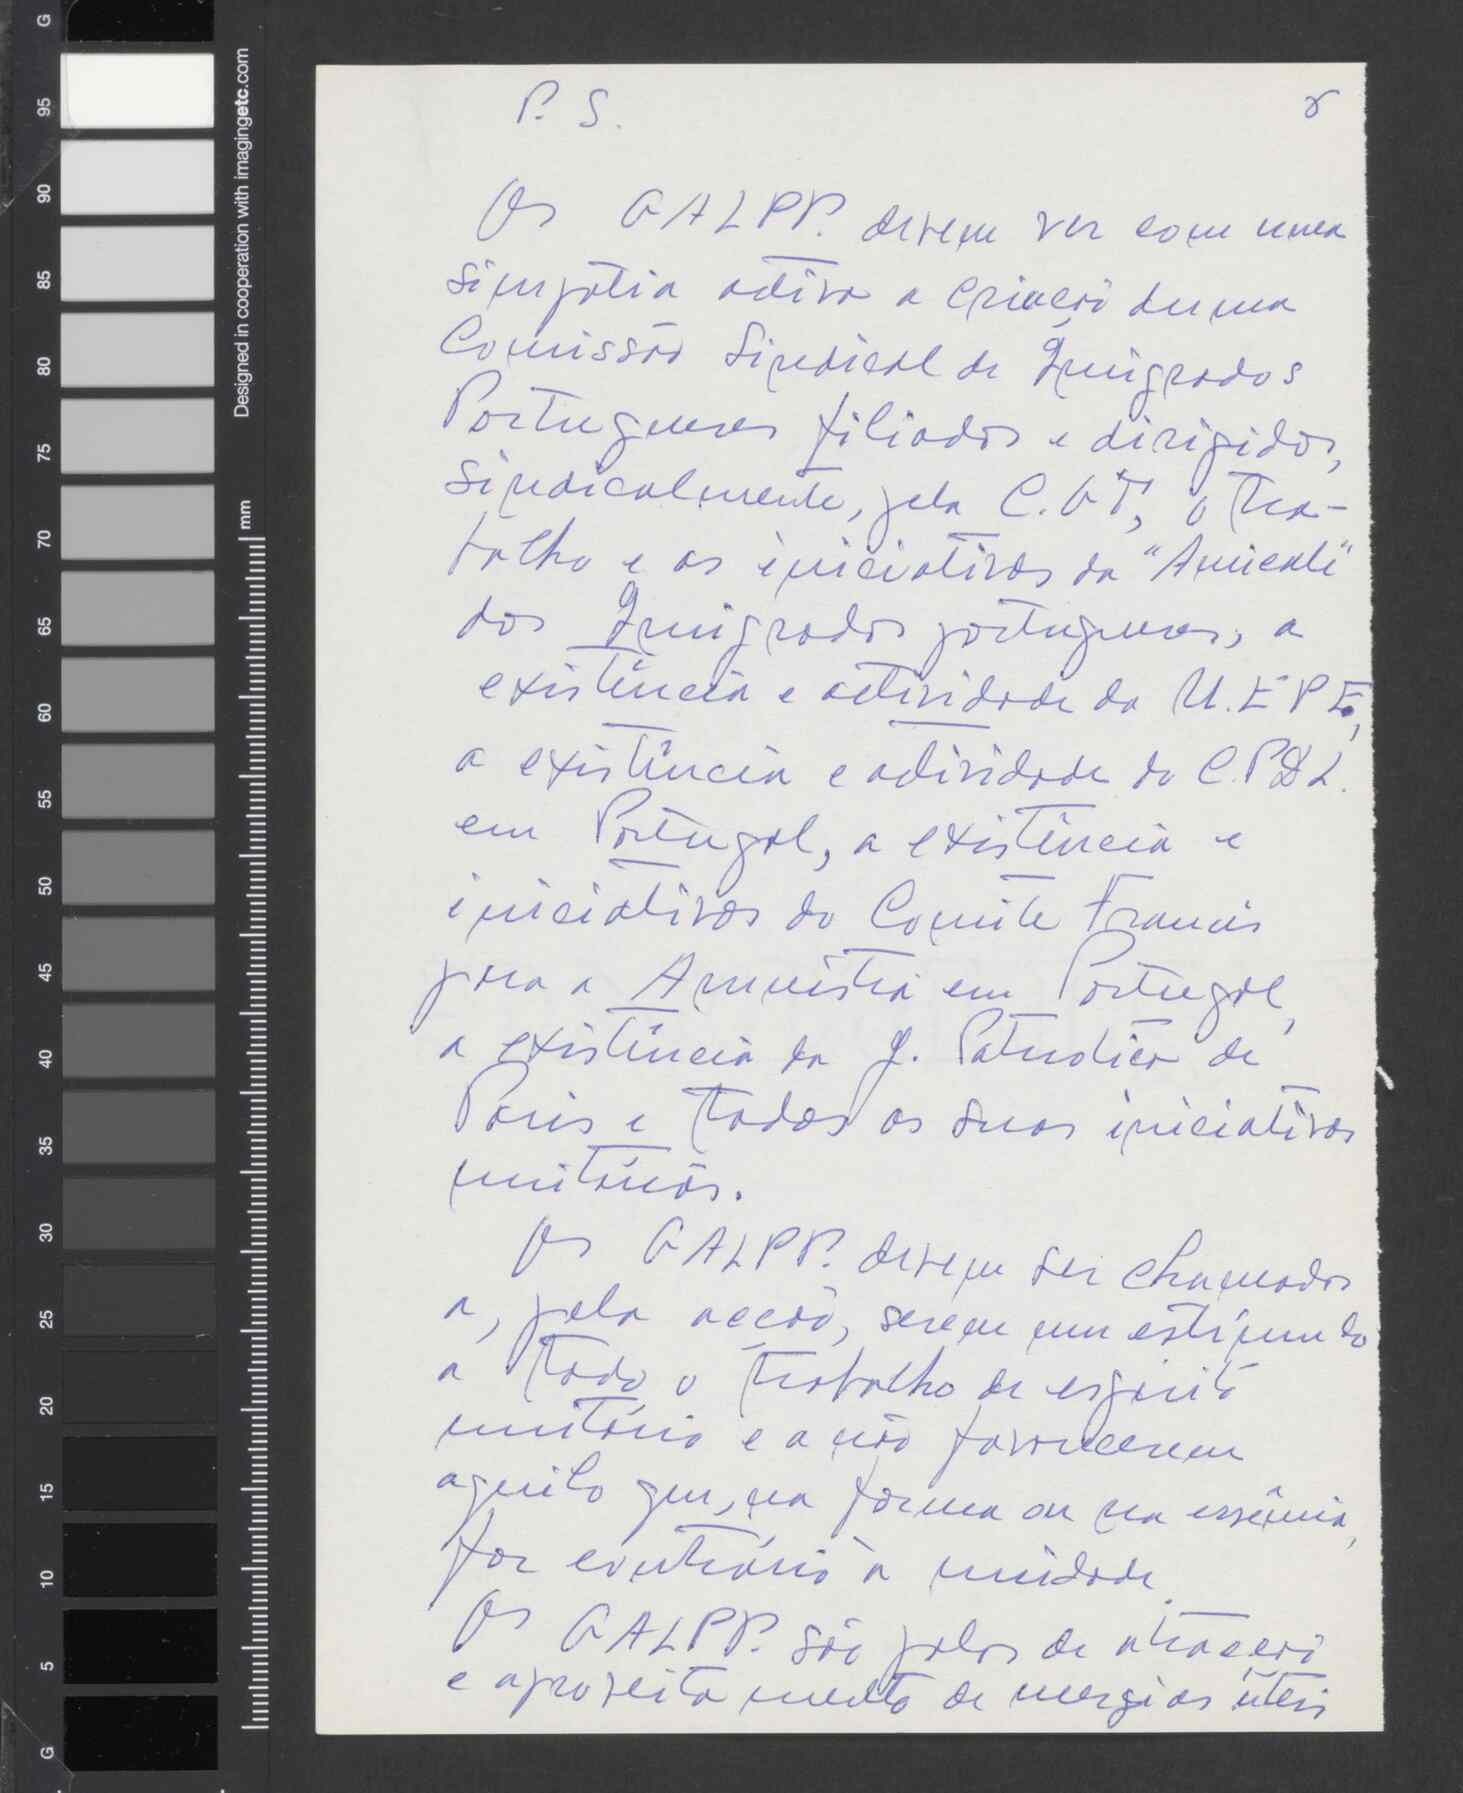 P. S. 8
Os GALPP. devem ver com uma
simpatia activa a criação duma
Comissão Sindical de Imigrados
Portugueses filiados e dirigidos,
sindicalmente, pela C.G.T., o tra-
balho e as iniciativas da "Amicale"
dos Imigrados portugueses, a
existência e actividade da U.E.P.E.,
a existência e actividade da C.P.D.L.
em Portugal, a existência e
iniciativas do Comité Francês
para a Amnistia em Portugal,
a existência da J. Patriótica de
Paris e todas as suas iniciativas
unitárias.
Os GALPP. devem ser chamados
a, pela acção, serem um estímulo
a todo o trabalho de espírito
unitário e a não favorecerem
aquilo que, na forma ou na essência,
for contrário à unidade.
Os GALPP. são polos de atracção
e aproveitamento de energias úteis
Designed in cooperation with imagingetc.com
mm
G
95
90
85
80
75
70
65
60
55
50
45
40
35
30
25
20
15
10
5
G